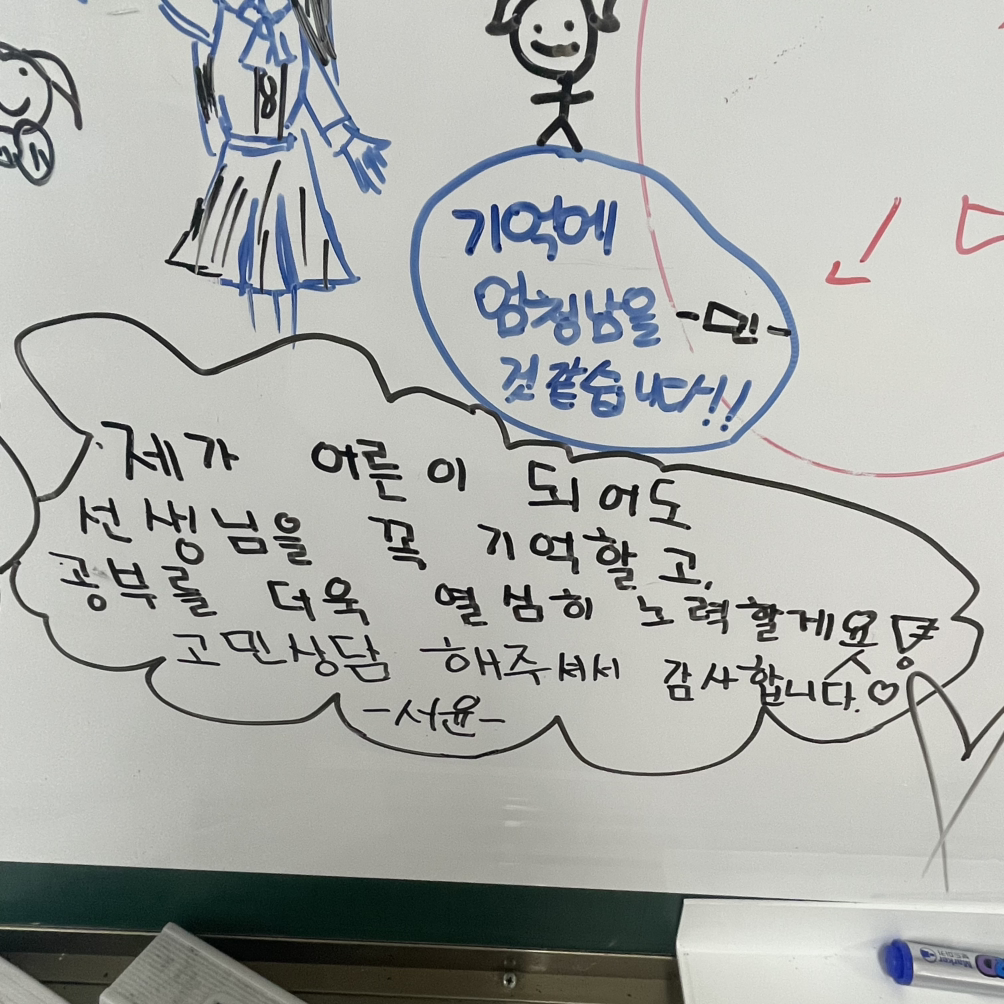 8
기억에
엄청남을 -민-
것같습니다!!
제가 어른이 되어도
선생님을 꼭 기억할고,
공부를 더욱 열심히 노력할게요!
고민상담 해주셔서 감사합니다.♡
-서윤-
Marker